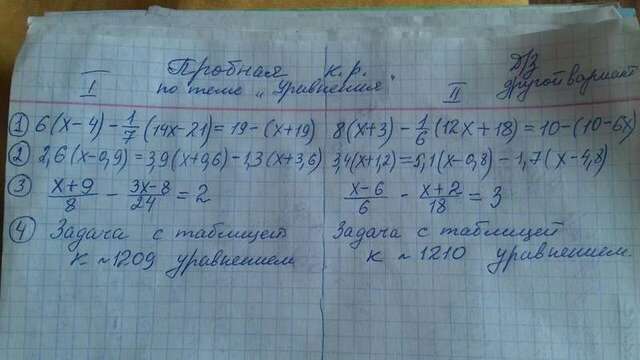 Пробная к.р.
по теме „Уравнения"
Д/з
другой вариант
I
II
① 6(x-4) - 1/7 (14x-21) = 19-(x+19)
② 2,6(x-0,9) = 3,9(x+0,6) - 1,3(x+3,6)
③ (x+9)/8 - (3x-8)/24 = 2
④ Задача с таблицей
к №1209 уравнением
8(x+3) - 1/6 (12x+18) = 10-(10-6x)
3,4(x+1,2) = 5,1(x-0,8) - 1,7(x-4,8)
(x-6)/6 - (x+2)/18 = 3
Задача с таблицей
к №1210 уравнением